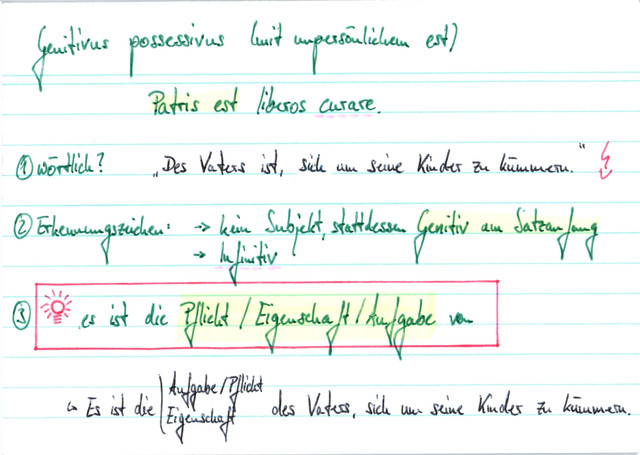 Genitivus possessivus (mit unpersönlichem est)
Patris est liberos curare.
① wörtlich? „Des Vaters ist, sich um seine Kinder zu kümmern."
② Erkennungszeichen: → kein Subjekt, stattdessen Genitiv am Satzanfang
→ Infinitiv
③ es ist die Pflicht / Eigenschaft / Aufgabe von
↳ Es ist die Aufgabe/Pflicht
Eigenschaft des Vaters, sich um seine Kinder zu kümmern.